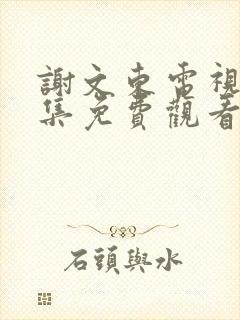 謝文東電視
集免費觀看
石頭與水